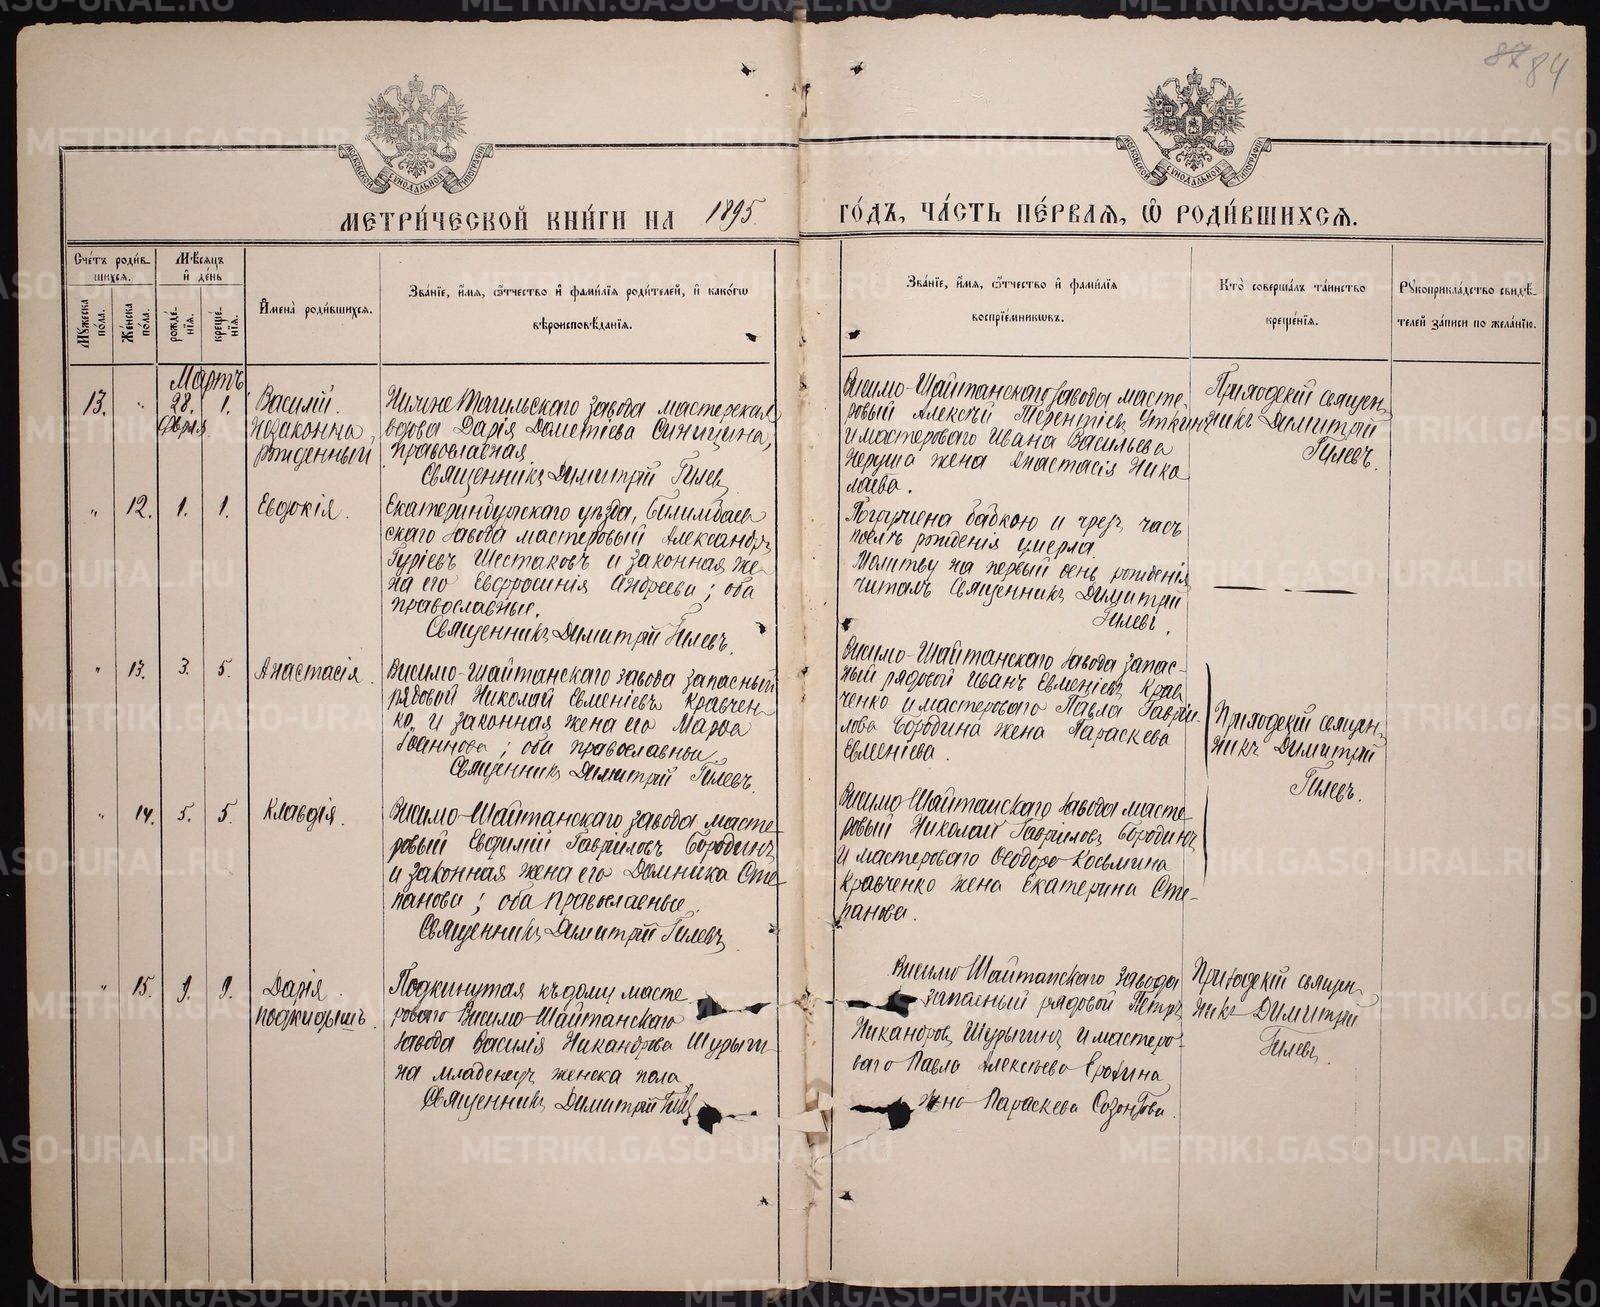 87 84
МОСКОВСКОЙ СѴНОДАЛЬНОЙ ТИПОГРАФІИ
МОСКОВСКОЙ СѴНОДАЛЬНОЙ ТИПОГРАФІИ
МЕТРИ́ЧЕСКОЙ КНИ́ГИ НА 1895 ГО́ДЪ, ЧА́СТЬ ПЕ́РВАЯ, Ѽ РОДИ́ВШИХСЯ.
Сче́тъ роди́вшихся.
Мꙋ́жеска по́ла.
Же́нска по́ла.
Мѣ́сяцъ и҆ де́нь
рожде́нїя.
креще́нїя.
И҆мена̀ роди́вшихся.
Зва́нїе, и҆́мя, ѻ҆́тчество и҆ фами́лїя роди́телей, и҆ како́гѡ вѣроисповѣ́данїя.
Зва́нїе, и҆́мя, ѻ҆́тчество и҆ фами́лїя воспрїе́мникѡвъ.
Кто̀ соверша́лъ та́инство креще́нїя.
Рꙋкоприкла́дство свидѣ́телей за́писи по жела́нїю.
Мартъ
13. " 28. Февря 1. Василій.
незаконно
рожденный
Нижне Тагильскаго завода мастерская
вдова Дарія Дометіева Синицина,
православная
Священникъ Димитрій Гилев
Висимо-Шайтанскаго завода масте-
ровый Алексѣй Терентіев Уткинъ
и мастероваго Ивана Васильева
жена Анастасія Нико
лаева.
Приходскій священ
никъ Димитрій
Гилевъ.
" 12. 1. 1. Евдокія.
Екатеринбургскаго уѣзда, Билимбаев
скаго завода мастеровый Александръ
Гуріевъ Шестаковъ и законная же
на его Евфросинія Андреева; оба
православные.
Священникъ Димитрій Гилевъ.
Погружена бабкою и чрезъ часъ
послѣ рожденія умерла.
Молитву на первый день рожденія
читалъ Священникъ Димитрій
Гилевъ.
" 13. 3. 5. Анастасія.
Висимо-Шайтанскаго завода запасный
рядовой Николай Евменіевъ Кравчен
ко, и законная жена его Марѳа
Іоаннова; оба православны
Священникъ Димитрій Гилевъ.
Висимо-Шайтанскаго завода запас-
ный рядовой Иванъ Евменіевъ Крав
ченко и мастероваго Павла Гаврі-
лова Бородина жена Параскева
Евменіева.
Приходскій священ
никъ Димитрій
Гилевъ.
" 14. 5. 5. Клавдія.
Висимо-Шайтанскаго завода масте-
ровый Евфимій Гавріиловъ Бородинъ
и законная жена его Домника Сте-
панова; оба православные.
Священникъ Димитрій Гилевъ
Висимо Шайтанскаго завода масте-
ровый Николай Гавріиловъ Бородинъ
и мастероваго Ѳеодора Косьмина
Кравченко жена Екатерина Сте-
панова.
" 15. 9. 9. Дарія
подкидышъ.
Подкинутая къ дому масте
роваго Висимо-Шайтанскаго
завода Василія Никандрова Шурыги-
на младенецъ женска пола
Священникъ Димитрій Гилев
Висимо Шайтанскаго завода
запасный рядовой Петръ
Никандровъ Шурыгинъ и мастеро-
ваго Павла Алексѣева Ерохина
жена Параскева Созонтова.
Приходскій священ
никъ Димитрій
Гилевъ.
METRIKI.GASO-URAL.RU